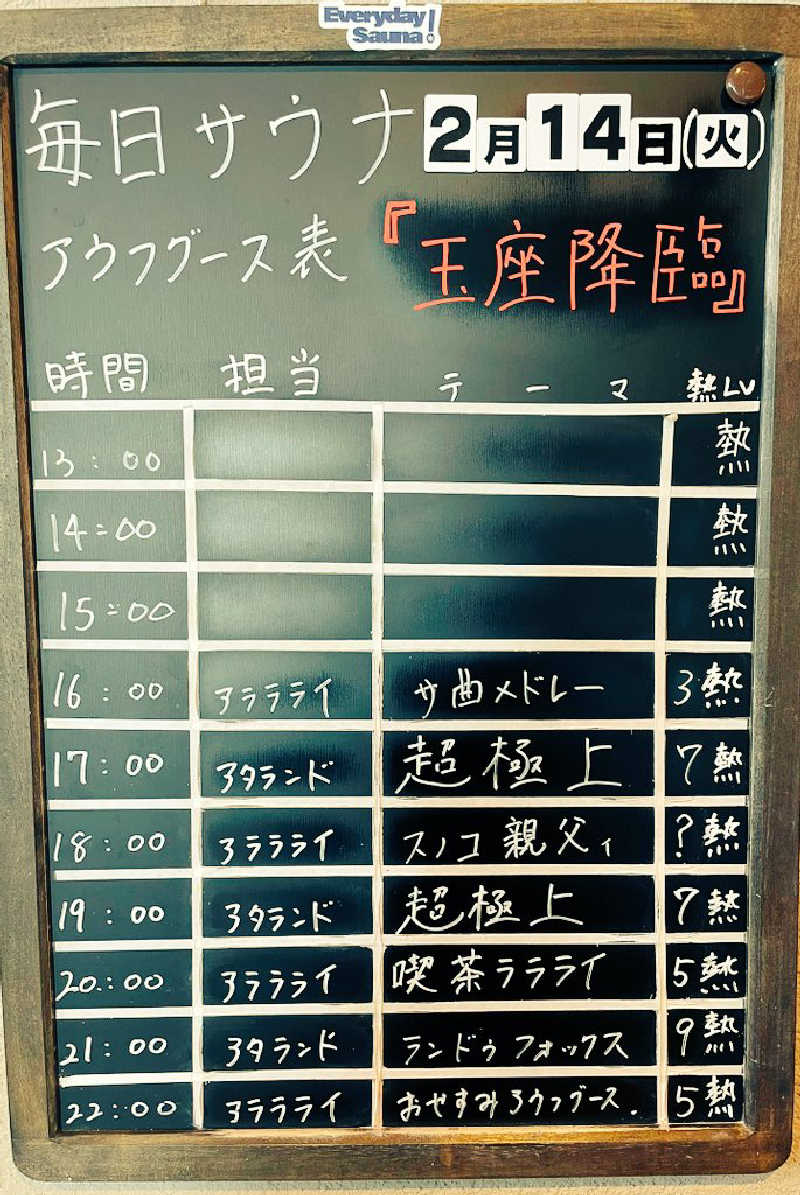 Everyday
Sauna!
毎日サウナ 2月14日(火)
アウフグース表 『玉座降臨』
時間 担当 テーマ 熱LV
13:00 熱
14:00 熱
15:00 熱
16:00 アララライ サ曲メドレー 3熱
17:00 アタランド 超極上 7熱
18:00 アララライ スノコ親父ィ ?熱
19:00 アタランド 超極上 7熱
20:00 アララライ 喫茶ララライ 5熱
21:00 アタランド ランドゥフォックス 9熱
22:00 アララライ おやすみアウフグース. 5熱